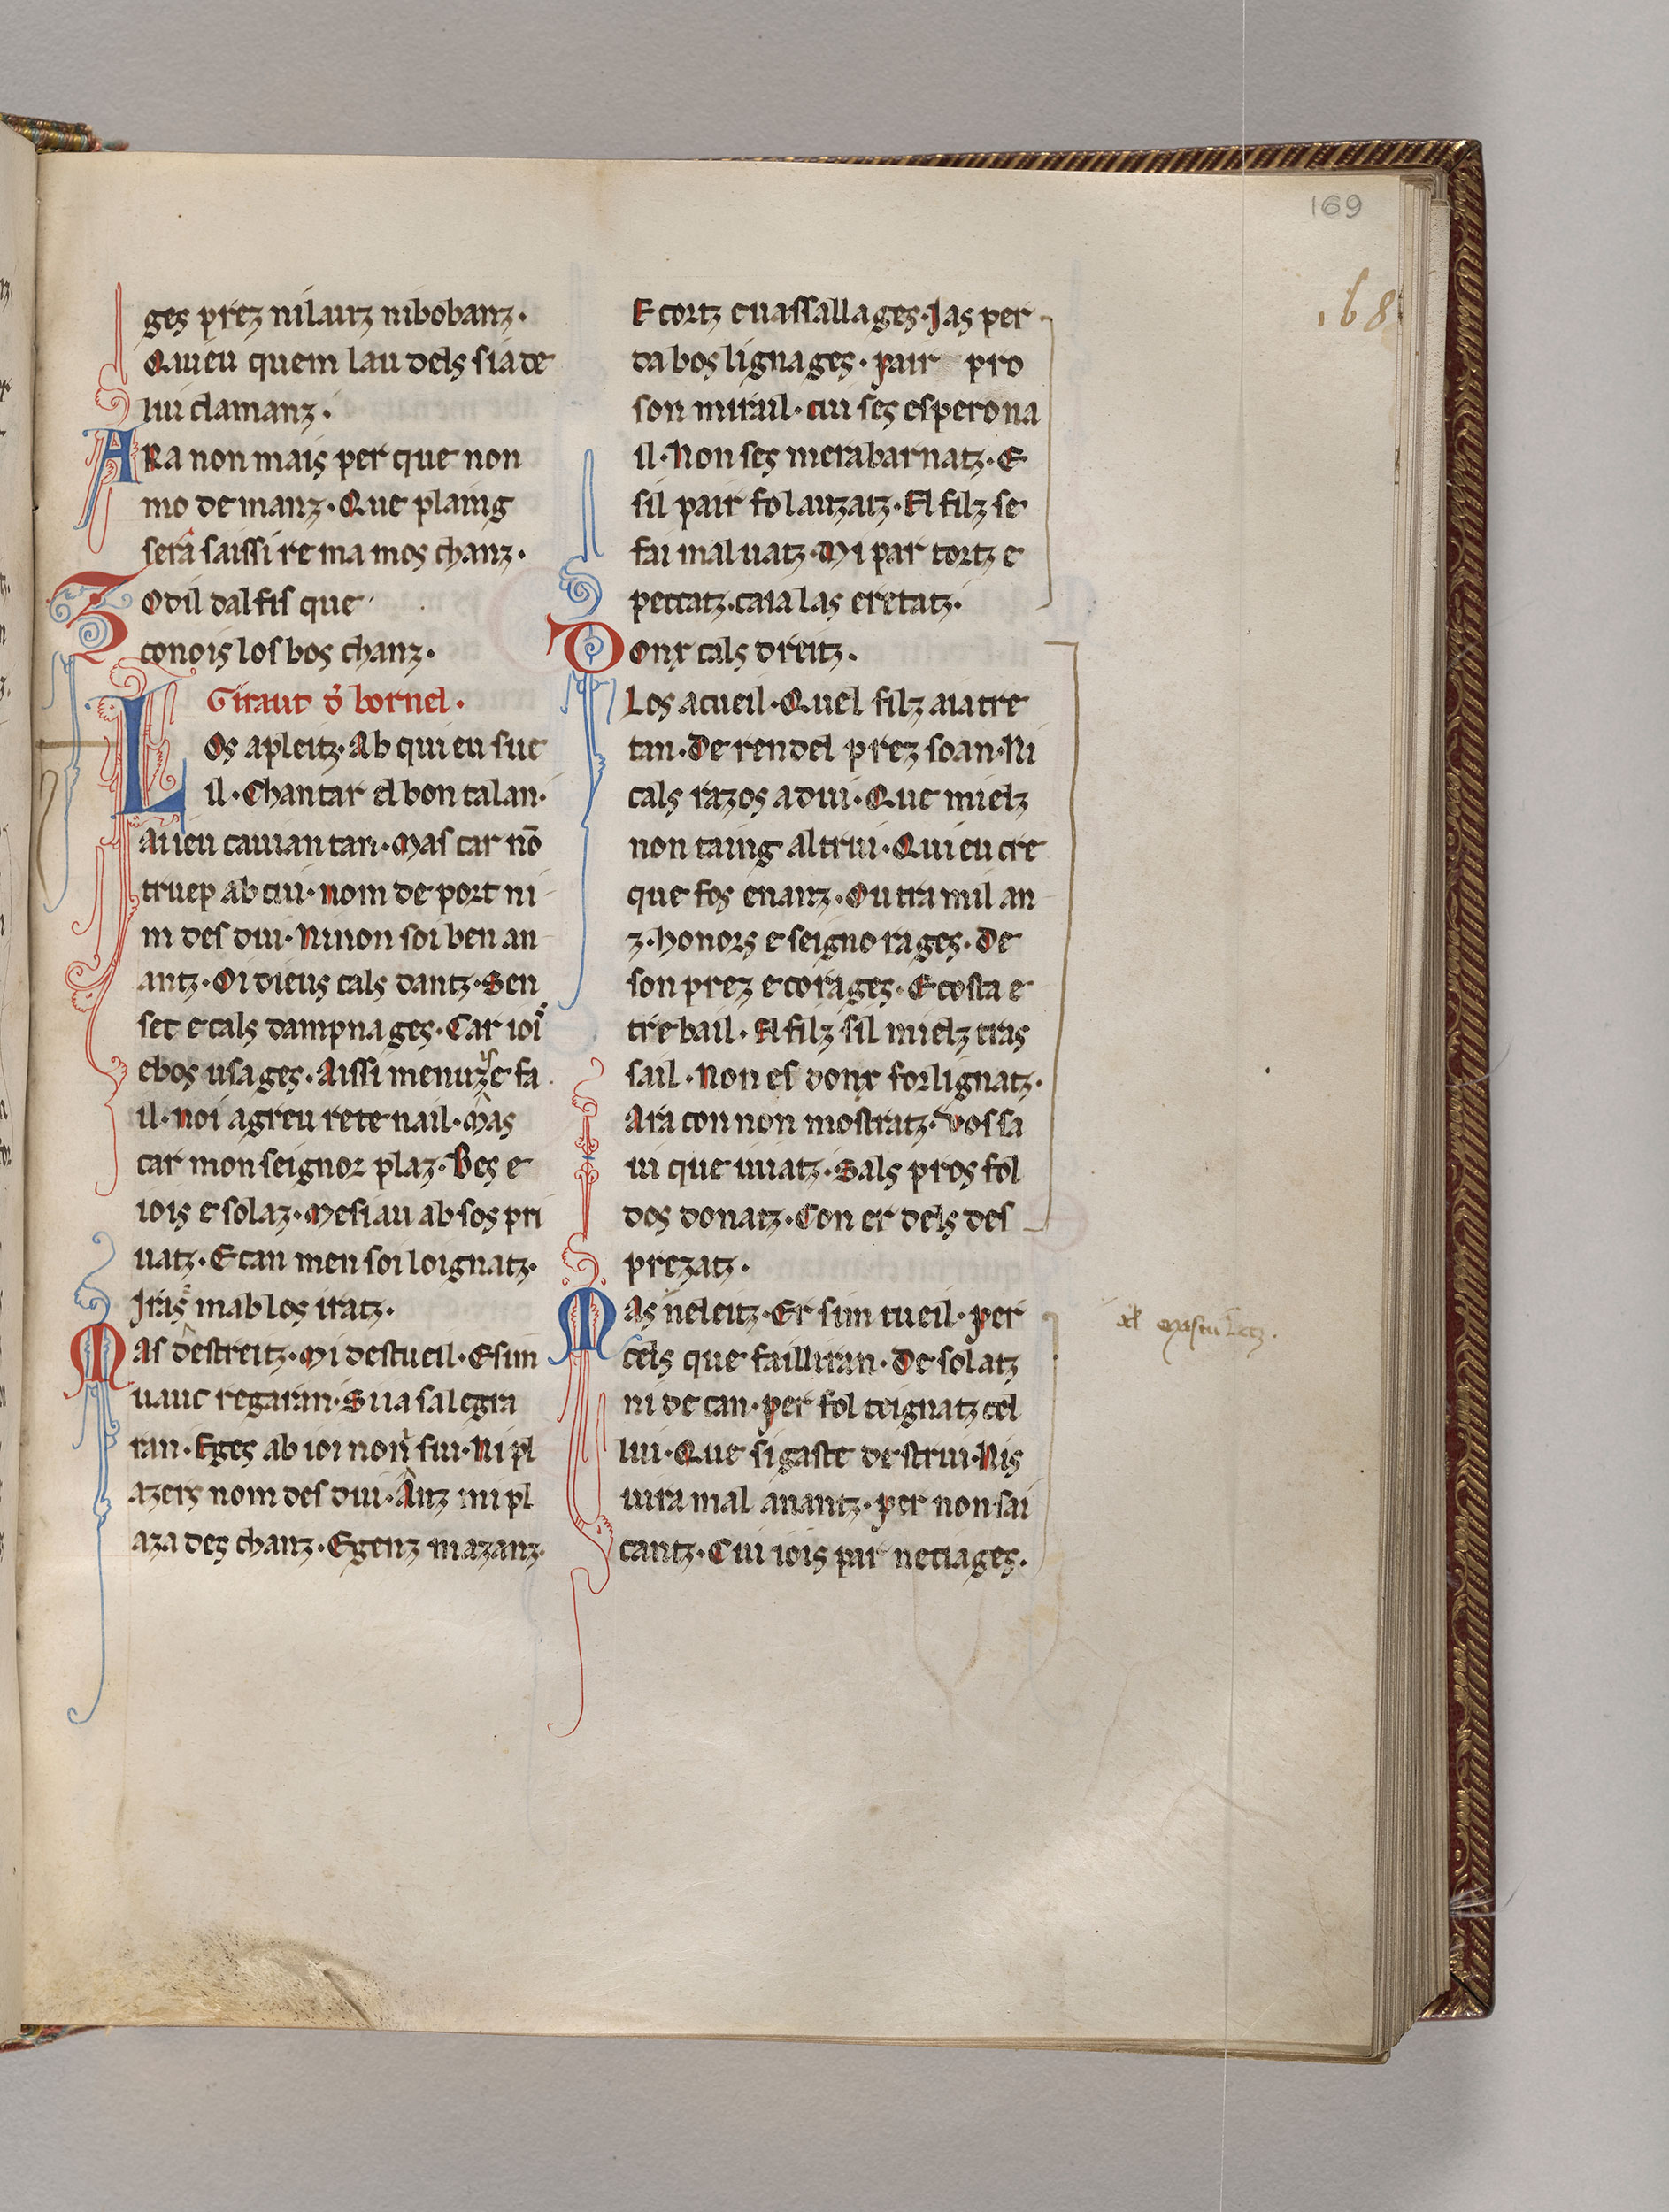 169
.168
ges prez ni lauz ni bobanz·
Qui eu quem lau dels sia de
lui clamanz·
ARa non mais per que non
mo demanz· Que plaing
sera saissi rema mos chanz·
Zo dil dalfis que
conois los bos chanz·
Giraut d̄ bornel·
LOs apleitz· Ab qui eu sue
il· Chantar el bon talan·
Auieu cauian tan· Mas car nō
truep ab cui· nom deport ni
m desdui· Ni non soi ben an
antz· Oi dieus cals dantz· Sen
set e cals dampnages· Car ioi
e bos usages· Aissi menuz e fa
il· noi agreu retenail· Mas
car mon seignor plaz· Bes e
iois e solaz· Mesiau ab sos pri
uatz· E can men soi loignatz·
Iras mab los iratz·
MAs destreitz· Mi destueil· E sim
uauc regaran· Si ia salegra
ran· E ges ab ioi non sui· Ni pl
azers nom desdui· Anz mi pl
aza des chanz· E genz mazanz·
E cortz e uassallages· Ias per
da bos lignages· pair pro
son mirail· cui ses esperona
il· Non ses mera barnatz· E
sil pair fo lauzatz· El filz se
fai maluatz· Mi par tortz e
peccatz· caia las eretatz·
DOnx cals dreitz·
Los acueil· Quel filz aia tre
tan· De ren del prez soan· Ni
cals razos adui· Que mielz
non taing altrui· Qui eu cre
que fos enanz· Outra mil an
z· honors e seignorages· De
son prez e corages· E costa e
trebail· El filz sil mielz tras
sail· Non es donx forlignatz·
Ara con non mostratz· vos sa
ui que uiatz· Sals pros fol
dos donatz· Con er dels des
prezatz·
MAs neleitz· Er sim tueil· per
cels que failliran· De solatz
ni de can· per fol teignatz cel
lui· Que sigaste destrui· Nis
uira mal anantz· per non sai
cantz· Cui iois par neciages·